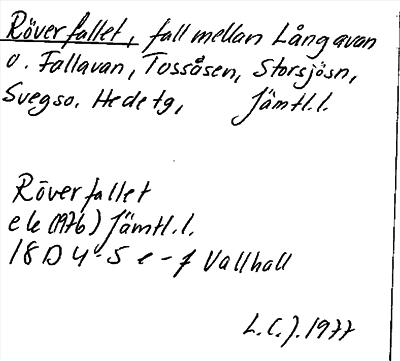 Röverfallet, fall mellan Långavan
o. Fallavan, Tossåsen, Storsjösn,
Svegso. Hede tg, Jämtl.l.
Röverfallet
ek (1976) Jämtl.l.
18 D 4-5 e-f Vallhall
L.C.J. 1977